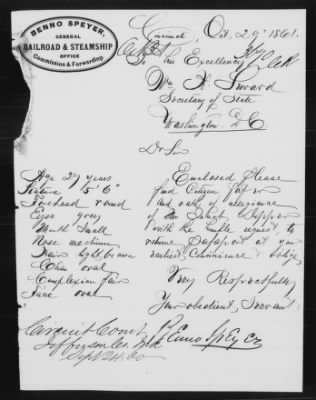 BENNO SPEYER,
GENERAL
RAILROAD & STEAMSHIP
OFFICE
Commission & Forwarding.
Oct. 29th 1861.
To His Excellency
Wm H. Seward
Secretary of State
Washington D C
Dr Sir
Enclosed please
find Citizen paper
and oath of allegiance
of
with the humble request, to
return Passport at your
earliest convenience & oblige
Very Respectfully
Your obedient Servant
Benno Speyer
Age 29 years
Stature 5' 6"
Forehead round
Eyes grey
Mouth Small
Nose medium
Hair light brown
Chin oval
Complexion fair
Face oval
Circuit Court
Jefferson Co.
Sept 24. 60